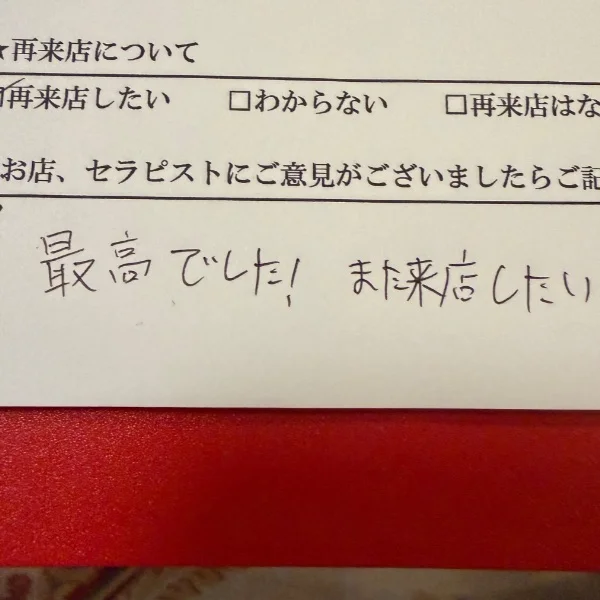 ★再来店について
☑再来店したい □わからない □再来店はな
お店、セラピストにご意見がございましたらご記
最高でした! また来店したい